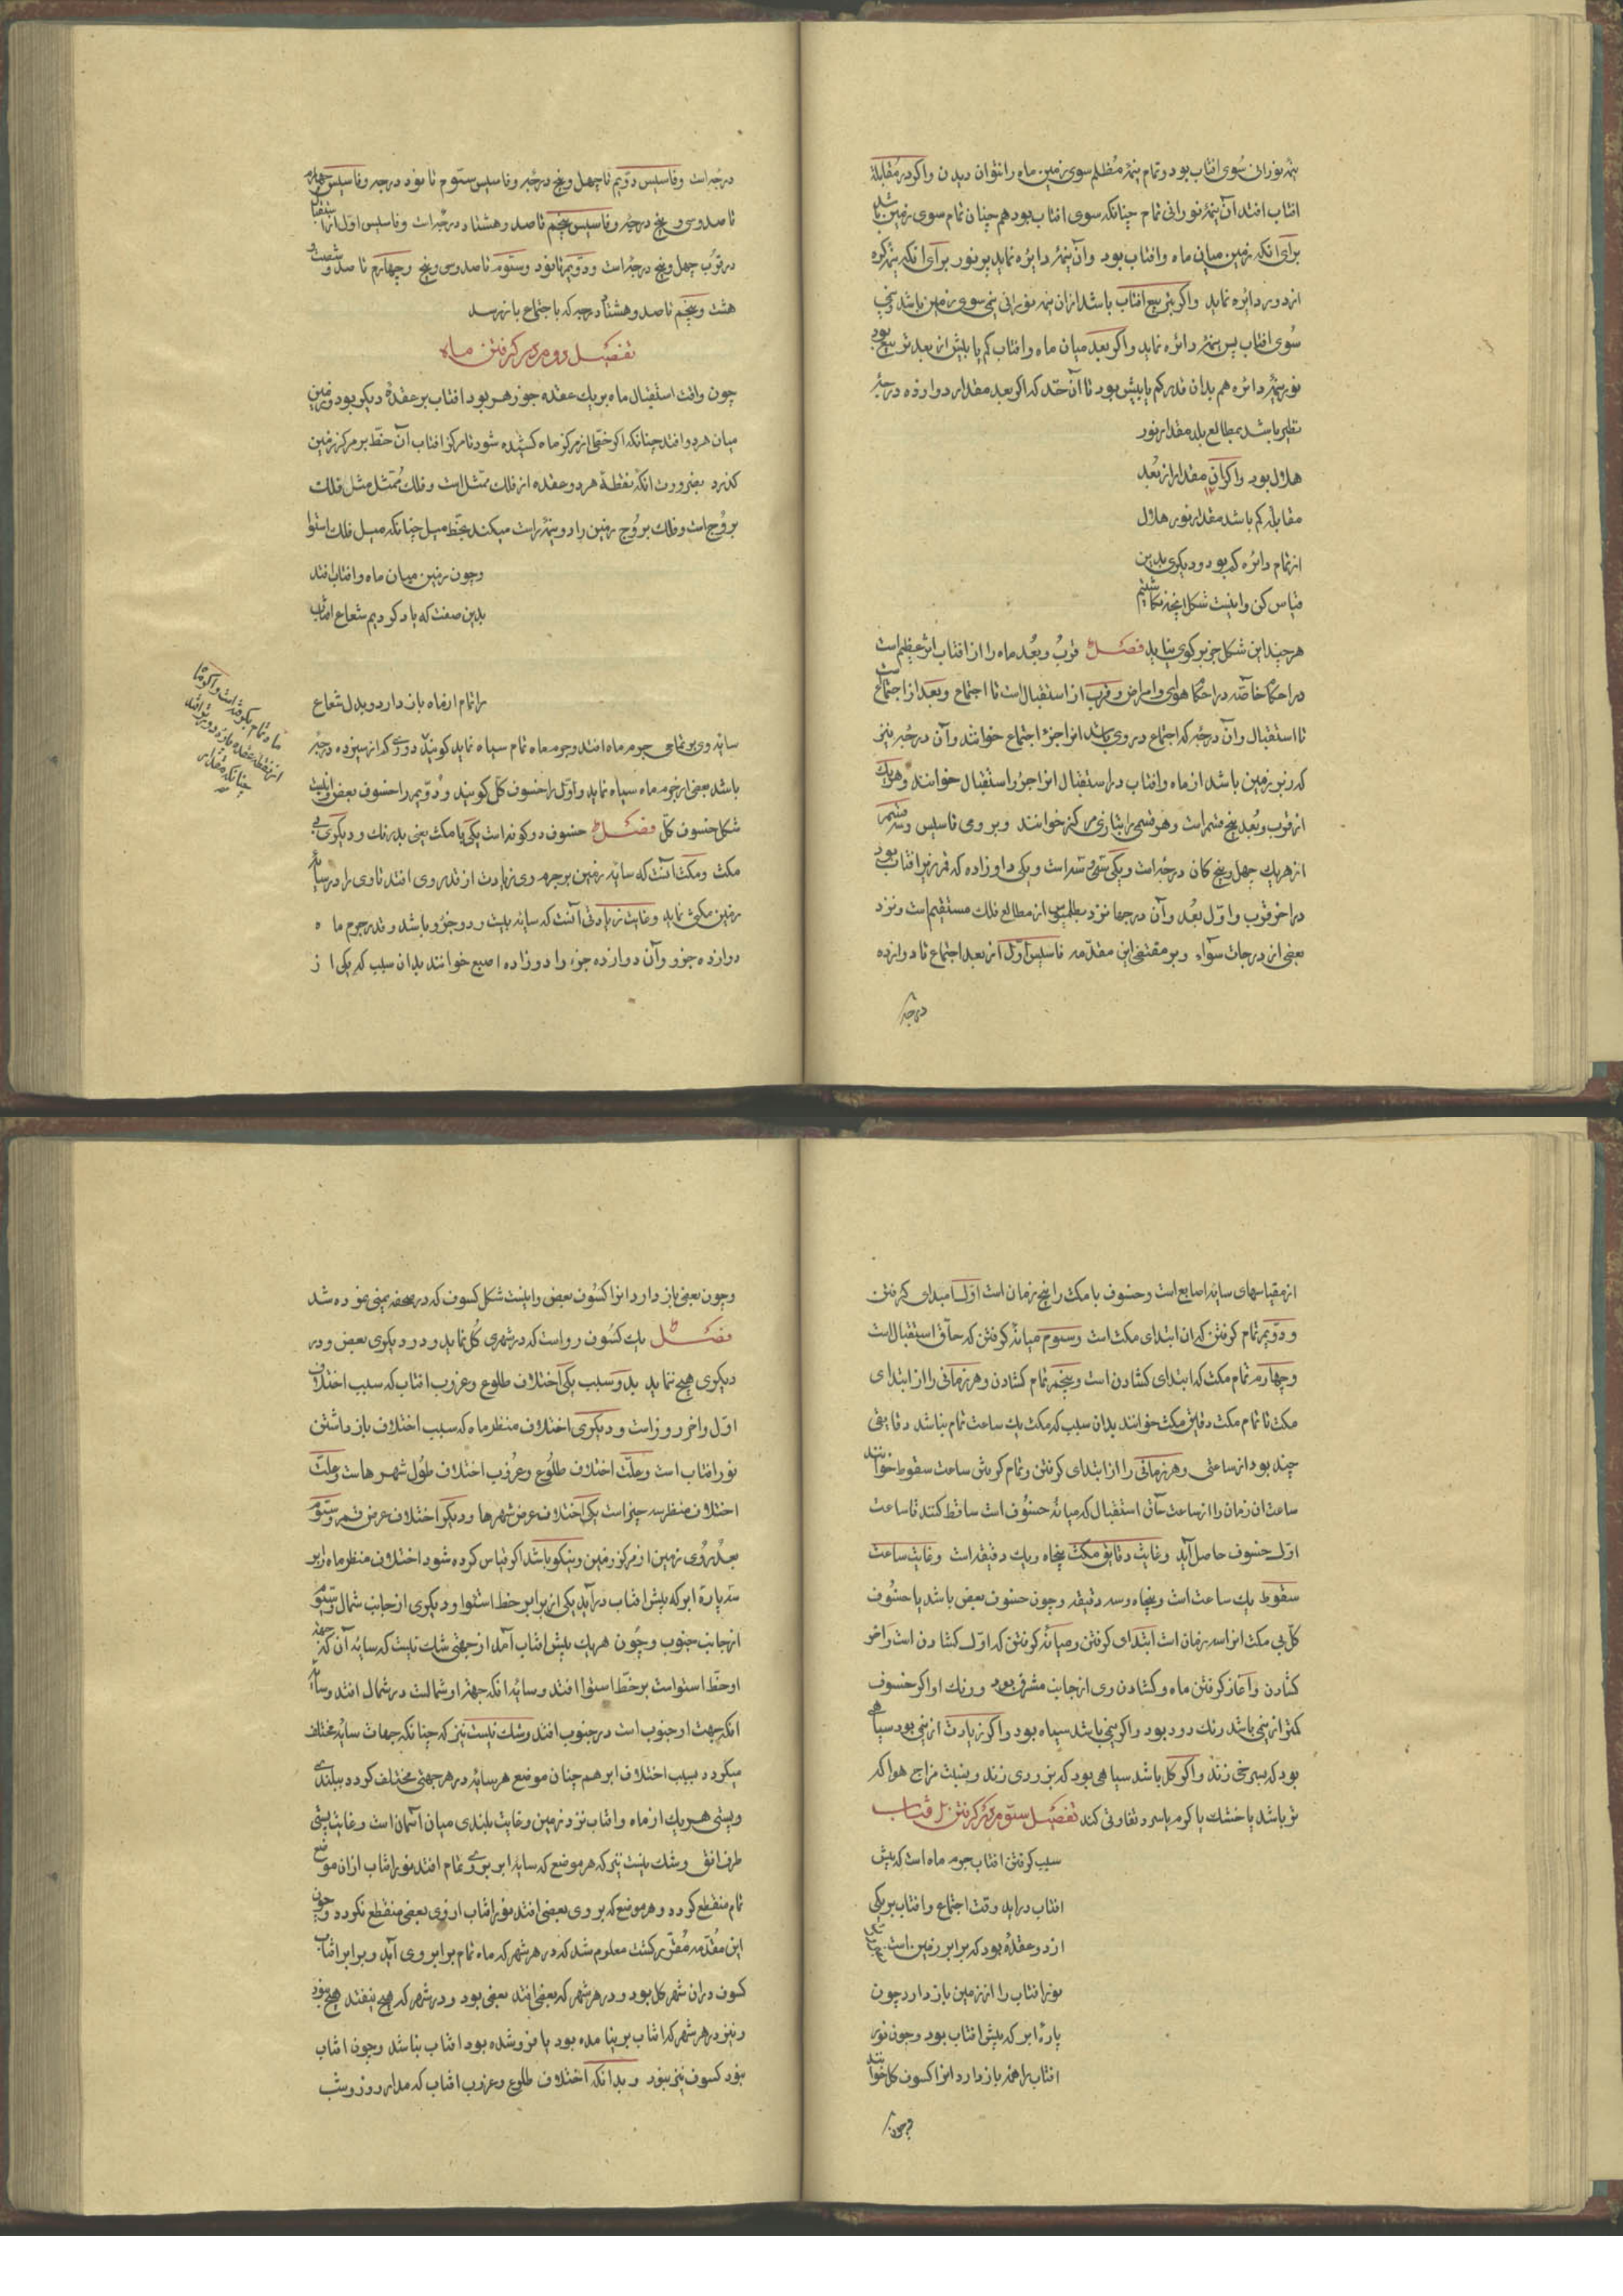 نیمهٔ نورانی سوی افتاب بود و تمام نیمهٔ مظلم سوی زمین ماه را نتوان دیدن واکر در مقابلهٔ
افتاب افتد آن نیمهٔ نورانی تمام چنانکه سوی افتاب بود هم چنان تمام سوی زمین باشد
برای انکه زمین میان ماه وافتاب بود وآن نیمهٔ دایره نماید بر نور برای انکه نیمهٔ کره
از دور دائره نماید واکر بتربیع افتاب باشد ازان نیمه نورانی نیمی سوی زمین باشد و نیمی
سوی افتاب پس نیمهٔ دائره نماید واکر بعد میان ماه وافتاب کم یا بیش از بعد تربیع بود
نور نیمهٔ دائره هم بدان قدر کم یا بیش بود تا آن حد که اکر بعد مقدار دوازده درجهٔ
باشد بمطالع بلد مقدار نور
هلال بود واکر آن مقدار از بعد
مقابله کم باشد مقدار نور هلال
از تمام دائره کم بود و دیکری بدین
قیاس کن واینست شکل انچه نکاشتیم
هرچند این شکل جز بر کوی نیاید فصل قرب وبعد ماه را از افتاب اثر عظیم است
در احکام خاصّه در احکام هوای وامراض وقرب از استقبال است تا اجتماع وبعد از اجتماع است
تا استقبال وآن درجه که اجتماع در وی باشد انرا جزؤ اجتماع خوانند وآن درجه نیز
که زبر زمین باشد از ماه وافتاب در استقبال انرا جزؤ استقبال خوانند وهر یک
از قرب وبعد پنج قسم است وهر قسمی را بتازی مرکز خوانند وبرومی تاسیس وسه قسم
از هر یک چهل وپنج کان درجه است ویکی سی وسه است ویکی دوازده که قمر زیر افتاب بود
در اخر قرب واول بعد وآن درجها نزد بطلمیوس از مطالع فلک مستقیم است ونزد
بعضی از درجات سواء وبر مقتضی این مقدّمه تاسیس اوّل از بعد اجتماع تا دوازده
درجه
درجه است وتاسیس دویم تا چهل وپنج درجه وتاسیس ستوم تا نود درجه وتاسیس چهارم
تا صدوسی و پنج درجه وتاسیس پنجم تا صد وهشتاد درجه است وتاسیس اول از استقبال
در قرب چهل وپنج درجه است ودویم تا نود وستوم تا صدوسی وپنج وچهارم تا صد و شصت و
هشت وپنجم تا صد وهشتاد درجه که باجتماع باز رسد
تفصیل دوم در کرفتن ماه
چون وقت استقبال ماه بر یک عقده جوزهر بود افتاب بر عقدهٔ دیکر بود وزمین
میان هر دو افتد چنانکه اکر خطی از مرکز ماه کشیده شود تا مرکز افتاب آن خط بر مرکز زمین
کذرد بضرورت انکه نقطهٔ هر دو عقده از فلک ممثل است وفلک ممثل مثل فلک
بروج است وفلک بروج زمین را دو نیمهٔ راست میکند بخط میل چنانکه میل فلک استوا
وچون زمین میان ماه وافتاب افتد
بدین صفت که یاد کردیم شعاع افتاب
را تمام از ماه باز دارد وبدل شعاع
سایهٔ وی بر تمامی جرم ماه افتد وجرم ماه تمام سیاه نماید کویند دوری که از سیزده درجه
باشد بعضی از جرم ماه سیاه نماید واوّل را خسوف کلّ کویند ودویم را خسوف بعض واینست
شکل خسوف کلّ فصل خسوف دو کونه است یکی با مکث یعنی بدرنک ودیکری بی
مکث ومکث آنست که سایهٔ زمین بر جرم وی زیادت از قدر وی افتد تا وی را در سایهٔ
زمین مکثی نماید وغایت زیادتی آنست که سایه بیست ودو جزو باشد وقدر جرم ماه
دوازده جزو وآن دوازده جزء را دوازده اصبع خوانند بدان سبب که یکی از
از مقیاسهای سایه اصابع است وخسوف با مکث را پنج زمان است اول مبدای کرفتن
ودویم تمام کرفتن که ان ابتدای مکث است وسیوم میانهٔ کرفتن که حاقّ استقبال است
وچهارم تمام مکث که ابتدای کشادن است وپنجم تمام کشادن وهر زمانی را از ابتدای
مکث تا تمام مکث دقایق مکث خوانند بدان سبب که مکث یک ساعت تمام نباشد دقایقی
چند بود از ساعتی وهر زمانی را از ابتدای کرفتن وتمام کرفتن ساعت سقوط خوانند
ساعت ان زمان را از ساعت حاق استقبال که میانهٔ خسوف است ساقط کنند تا ساعت
اول خسوف حاصل آید وغایت دقایق مکث پنجاه ویک دقیقه است وغایت ساعت
سقوط یک ساعت است وپنجاه وسه دقیقه وچون خسوف بعض باشد یا خسوف
کلّ بی مکث انرا سه زمان است ابتدای کرفتن ومیانهٔ کرفتن که اول کشادن است واخر
کشادن وآغاز کرفتن ماه وکشادن وی از جانب مشرق بود ورنک او اکر خسوف
کمتر از نیمی باشد رنک دود بود واکر نیمی باشد سیاه بود واکر زیادت از نیمی بود سیاهی
بود که بسرخی زند واکر کل باشد سیاهی بود که بزردی زند وبنسبت مزاج هوا که
تر باشد یا خشک یا کرم یا سرد تفاوتی کند تفصیل ستوم در کرفتن افتاب
سبب کرفتن افتاب جرم ماه است که پیش
افتاب دراید وقت اجتماع وافتاب بر یکی
از دو عقده بود که برابر زمین است
نور افتاب را از زمین باز دارد چون
پارهٔ ابر که پیش افتاب بود وچون نور
افتاب را همه باز دارد انرا کسوف کل خوانند
وچون
وچون بعضی باز دارد انرا کسوف بعض واینست شکل کسوف که در صحفه یمینی نموده شد
فصل یک کسوف رواست که در شهری کل نماید ودر دیکری بعض ودر
دیکری هیچ ننماید بدو سبب یکی اختلاف طلوع وغروب افتاب که سبب اختلاف
اوّل واخر روز است ودیکری اختلاف منظر ماه که سبب اختلاف باز داشتن
نور افتاب است وعلّت اختلاف طلوع وغروب اختلاف طول شهرهاست وعلّت
اختلاف منظر سه چیز است یکی اختلاف عرض شهرها ودیکر اختلاف عرض قمر وستوم
بعد روی زمین از مرکز زمین ونیکو باشد اکر قیاس کرده شود اختلاف منظر ماه را بر
سه پارهٔ ابر که پیش افتاب درآید یکی از برابر خط استوا ودیکری از جانب شمال وستوم
از جانب جنوب وچون هر یک پیش افتاب آمد از جهتی شک نیست که سایهٔ آن که جهة
او خطّ استواست بر خطّ استوا افتد وسایهٔ انکه جهة او شمالست در شمال افتد وسایهٔ
انکه جهت او جنوب است در جنوب افتد وشک نیست نیز که چنانکه جهات سایه مختلف
میکردد بسبب اختلاف ابر هم چنان موضع هر سایه در هر جهتی مختلف کردد ببلندی
وپستی هر یک از ماه وافتاب نزد زمین وغایت بلندی میان آسمان است وغایت پستی
طرف افق وشک نیست نیز که هر موضع که سایهٔ ابر بروی تمام افتد نور افتاب ازان موضع
تمام منقطع کردد وهر موضع که بر وی بعضی افتد نور افتاب از وی بعضی منقطع نکردد وچون
این مقدّمه مقرّر کشت معلوم شد که در هر شهر که ماه تمام برابر وی آید وبرابر افتاب
کسوف دران شهر کل بود ودر هر شهر که بعضی افتد بعضی بود ودر شهر که هیچ نیفتد هیچ نبود
ونیز در هر شهر که افتاب بر نیامده بود یا فرو شده بود افتاب نباشد وچون افتاب
نبود کسوف نیز نبود وبدانکه اختلاف طلوع وغروب افتاب که مدار روز وشب